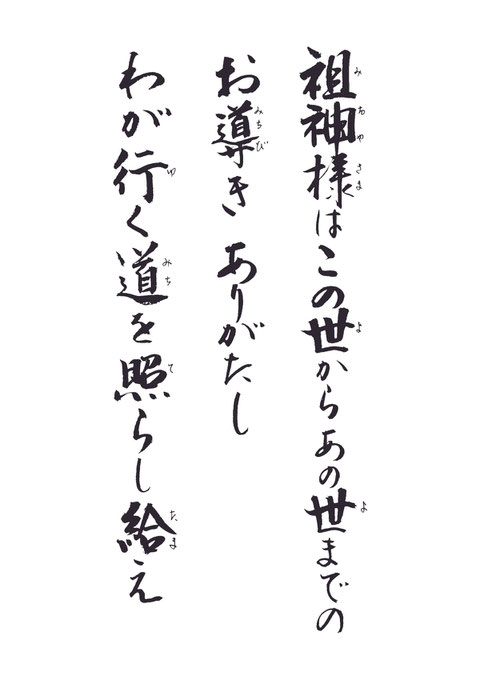 祖神様はこの世からあの世までの
お導き ありがたし
わが行く道を照らし給え